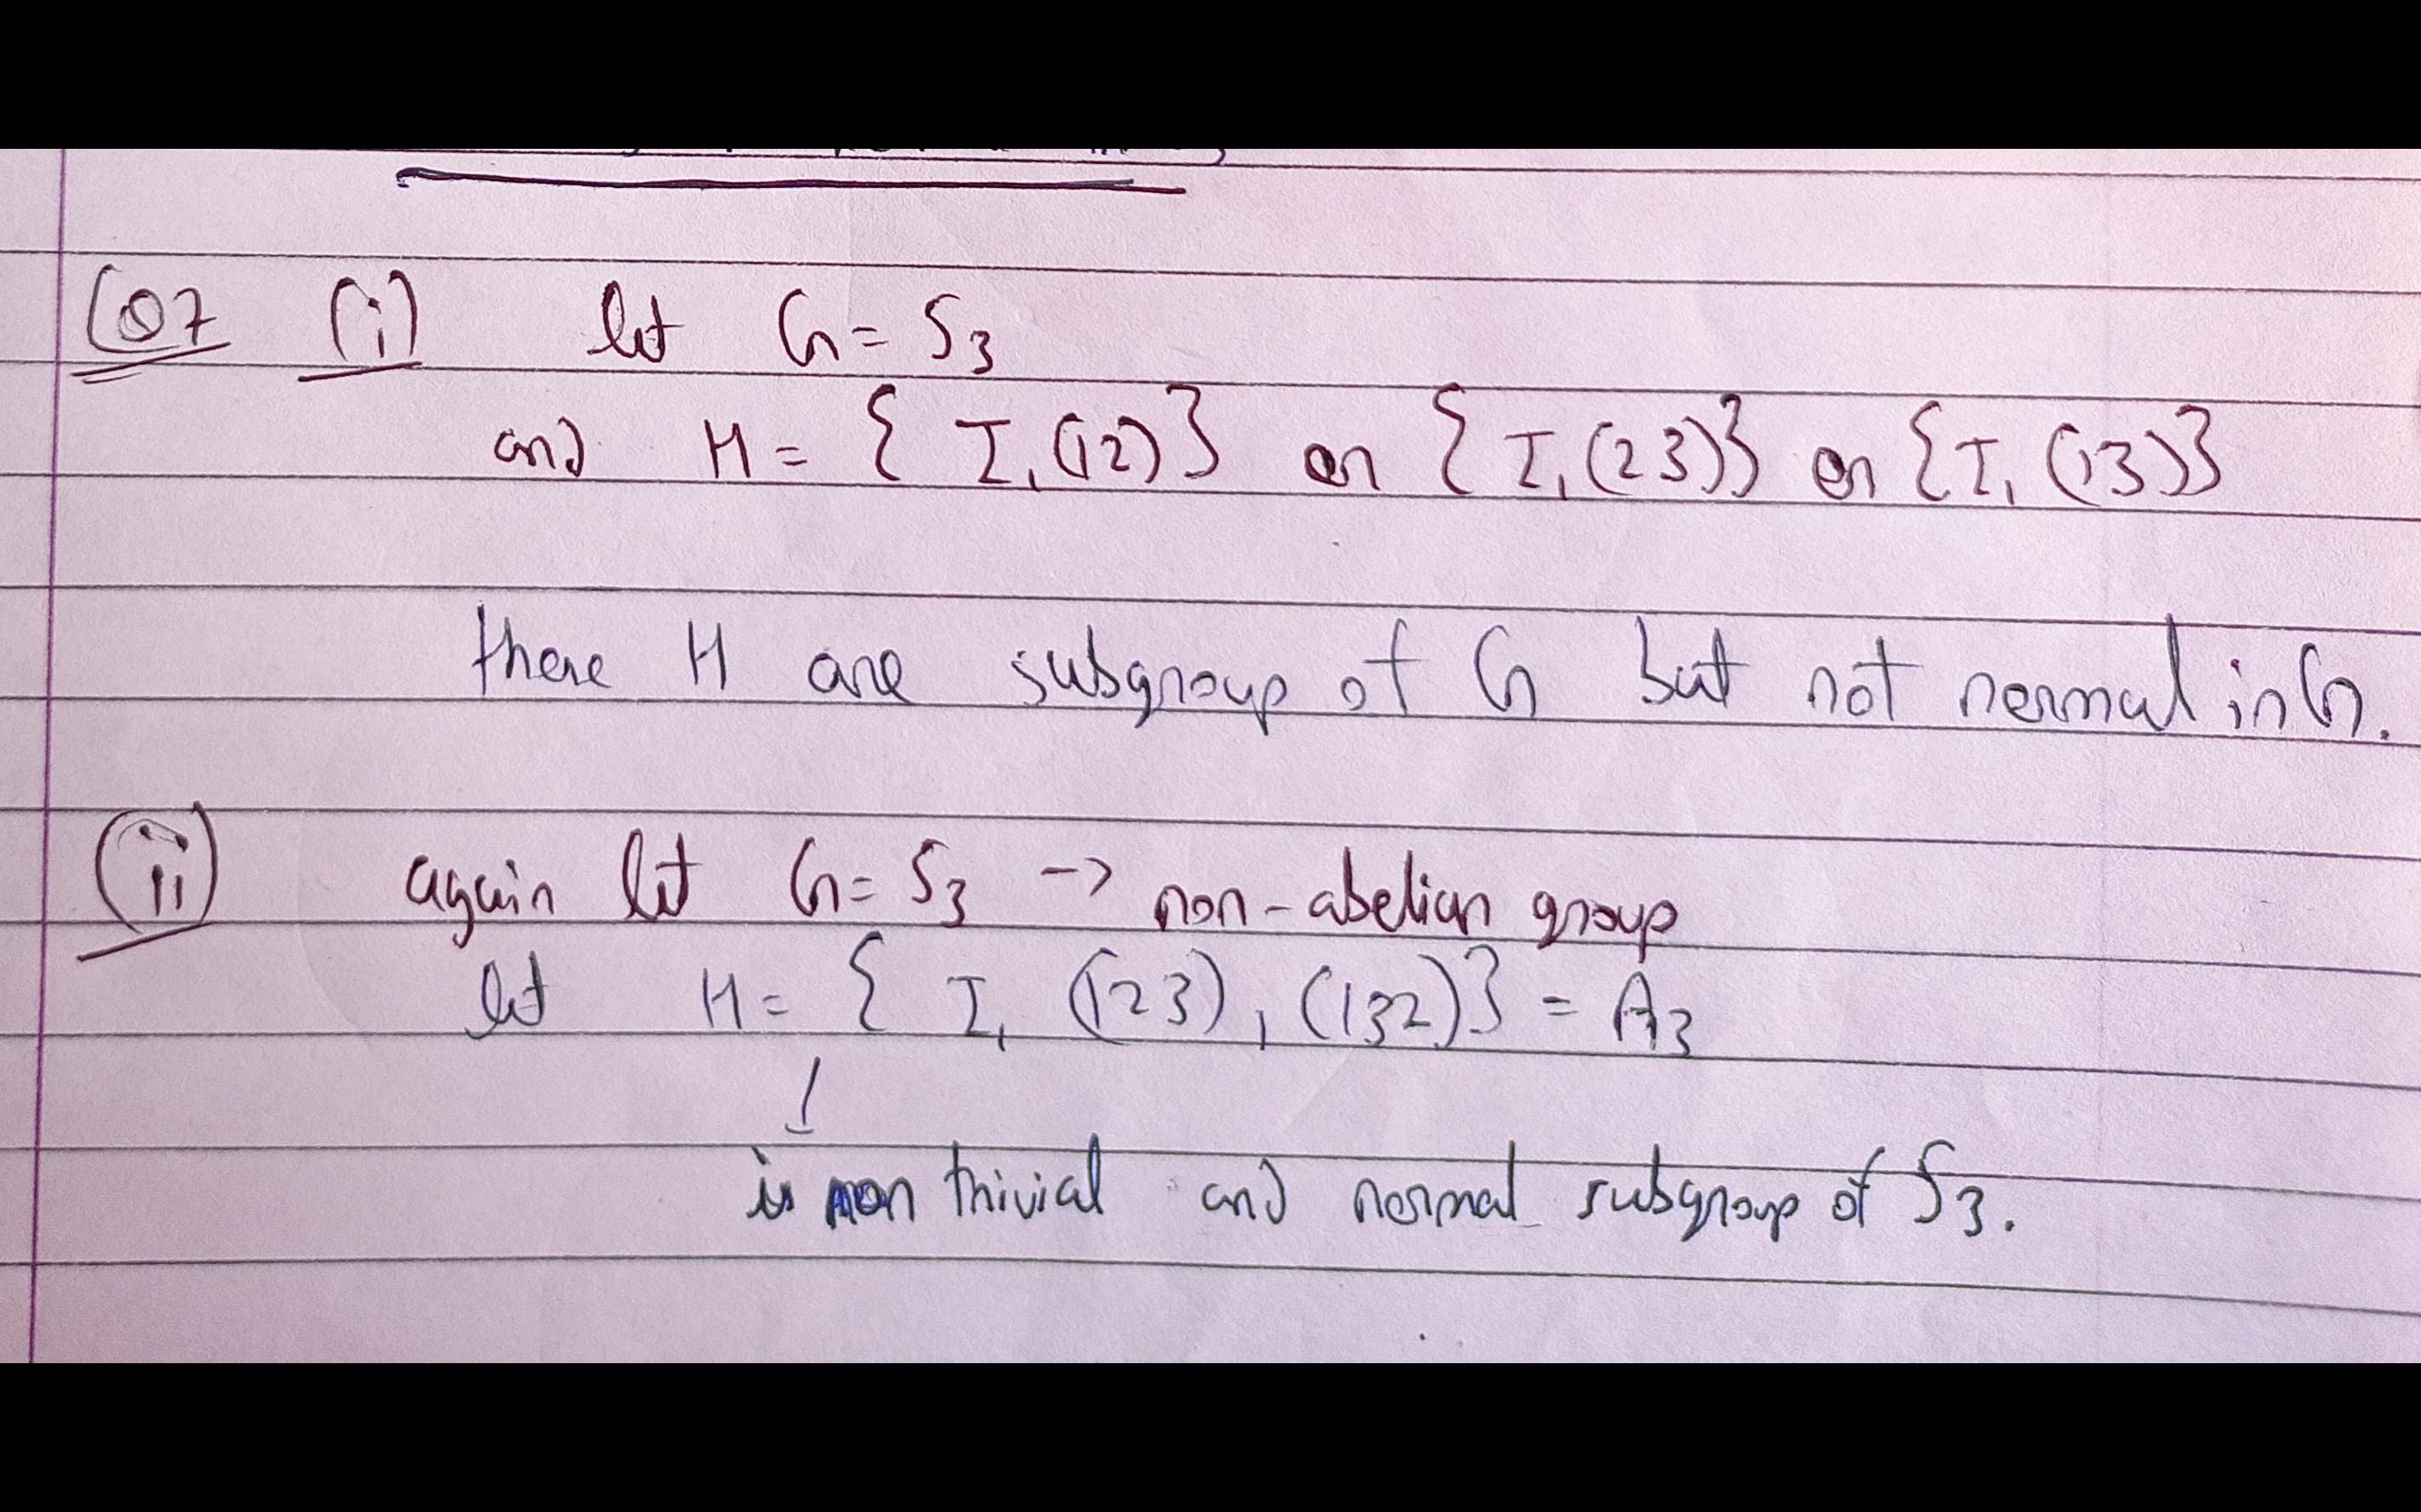 Q7 (i) let G = S3
and H = { I, (12)} or { I, (23)} or { I, (13)}
these H are subgroup of G but not normal in G.
(ii) again let G = S3 -> non-abelian group
let H = { I, (123), (132)} = A3
is non trivial and normal subgroup of S3.